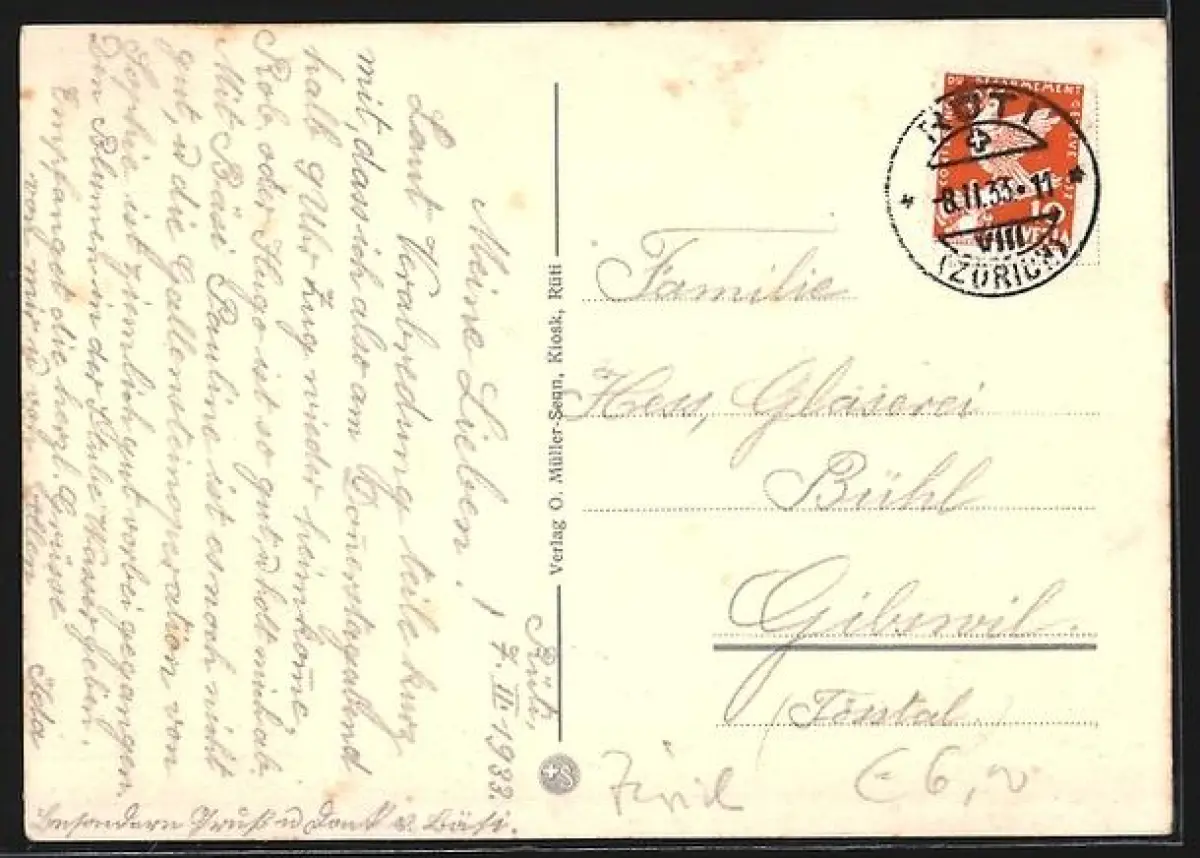 Rüti,
7. II 1933.
Meine Lieben!
Laut Verabredung teile kurz
mit, dass ich also am Don̄erstagabend
halb 9 Uhr Zug wieder heimkom̄e,
Rob. oder Hugo ist so gut u holt mich ab.
Mit Bäsi Pauline ist es noch nicht
gut, u die Gallensteinoperation von
Sophie ist ziemlich gut vorbei gegangen.
Den Blumen in der Stube Wasser geben.
Empfanget die herzl. Grüsse
von mir u von Allen Ida
besondern Gruß u Dank v. Bäsi.
Verlag O. Müller-Senn, Kiosk, Rüti
DU DÉSARMEMENT
RÜTI
-8.II.33.11
VIII
(ZÜRICH)
10
Familie
Hess, Glaserei
Bühl
Gibswil.
(Tösstal.
Fürid
€ 6,-